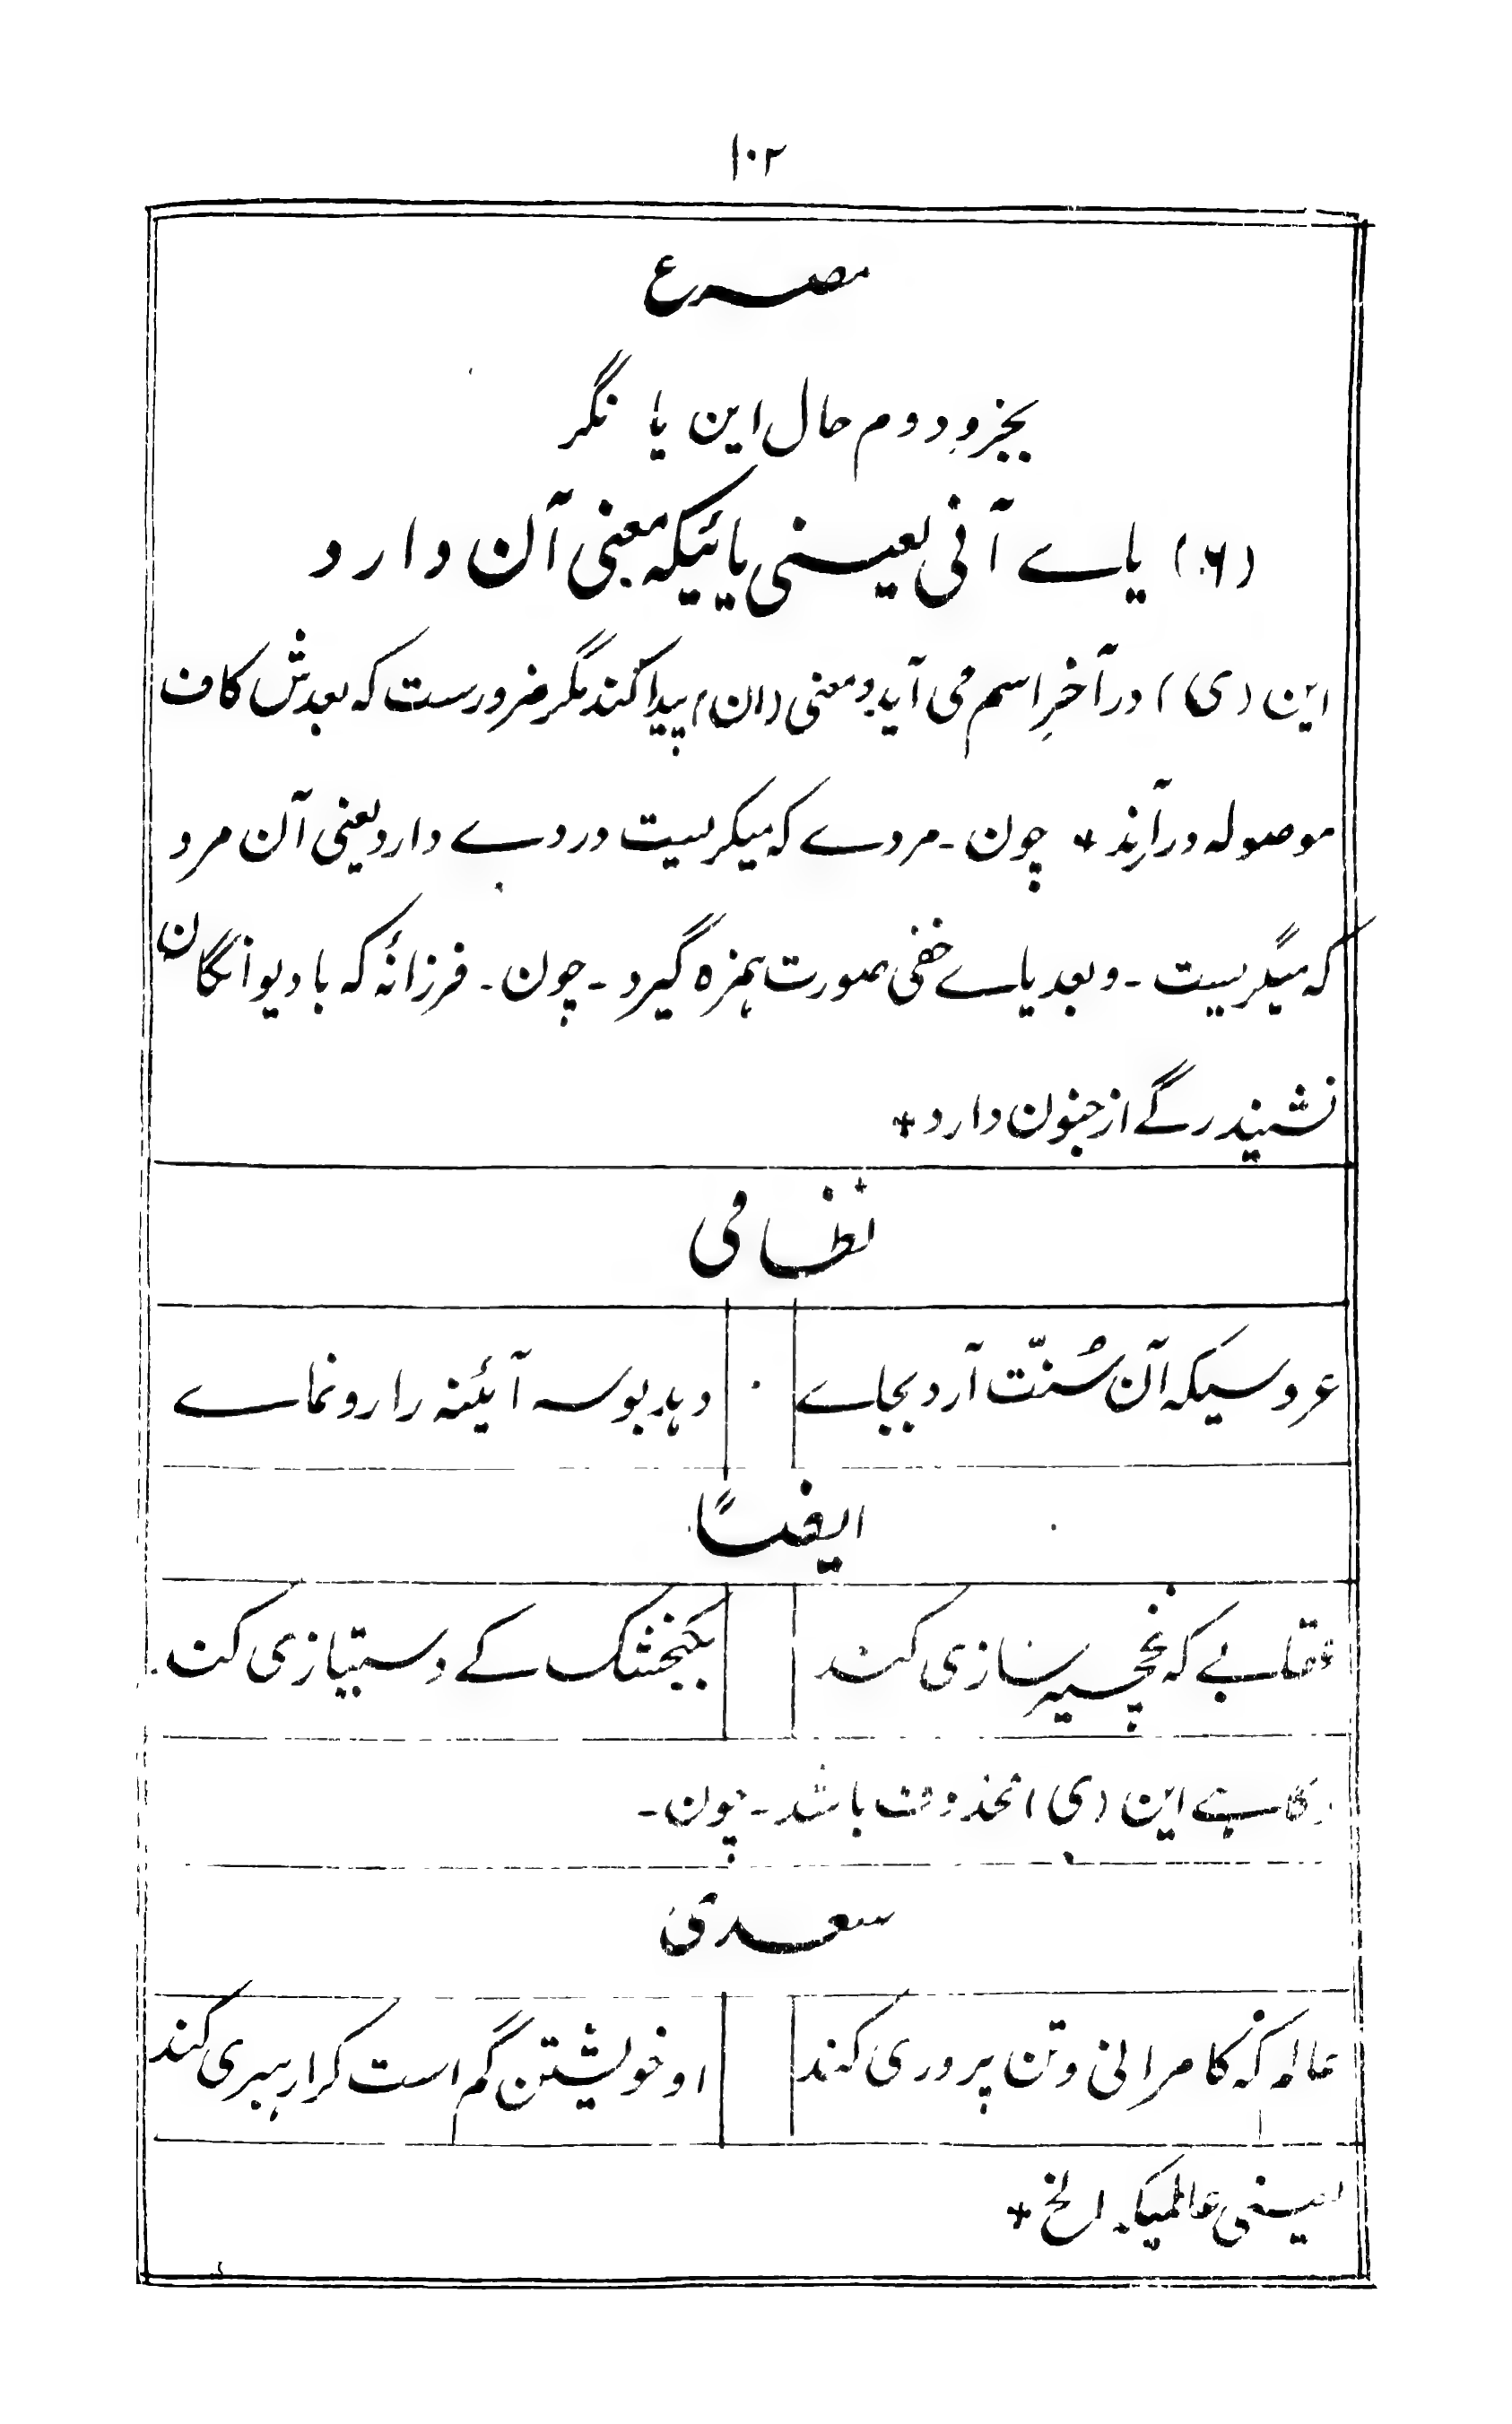 ۱۰۲
مصرع
بجزو دوم حال این یا نگر
(۶) یاے آنی یعنی یائیکہ معنی آن دارد
این (ی) در آخرِ اسم می آید و معنی (ان) پیدا کند مگر ضرورست کہ بعدش کاف
موصولہ در آرند + چون - مردے کہ میگریست دردے دارد یعنی آن مرد
کہ میگریست - و بعد یاے خفی صورت ہمزہ گیرد - چون - فرزانۂ کہ با دیوانگان
نشیند رگے از جنون دارد +
نظامی
عروسیکہ آن سُنّت آرد بجاے دہد بوسہ آئینہ را رونماے
ایضاً
عقابے کہ نخچیر سازی کند بکنجشک کے دستیازی کند
و گاہے این (ی) محذوف باشد - چون -
سعدی
عالم کہ کامرانی و تن پروری کند او خویشتن گم است کرا رہبری کند
یعنی عالمیکہ الخ +